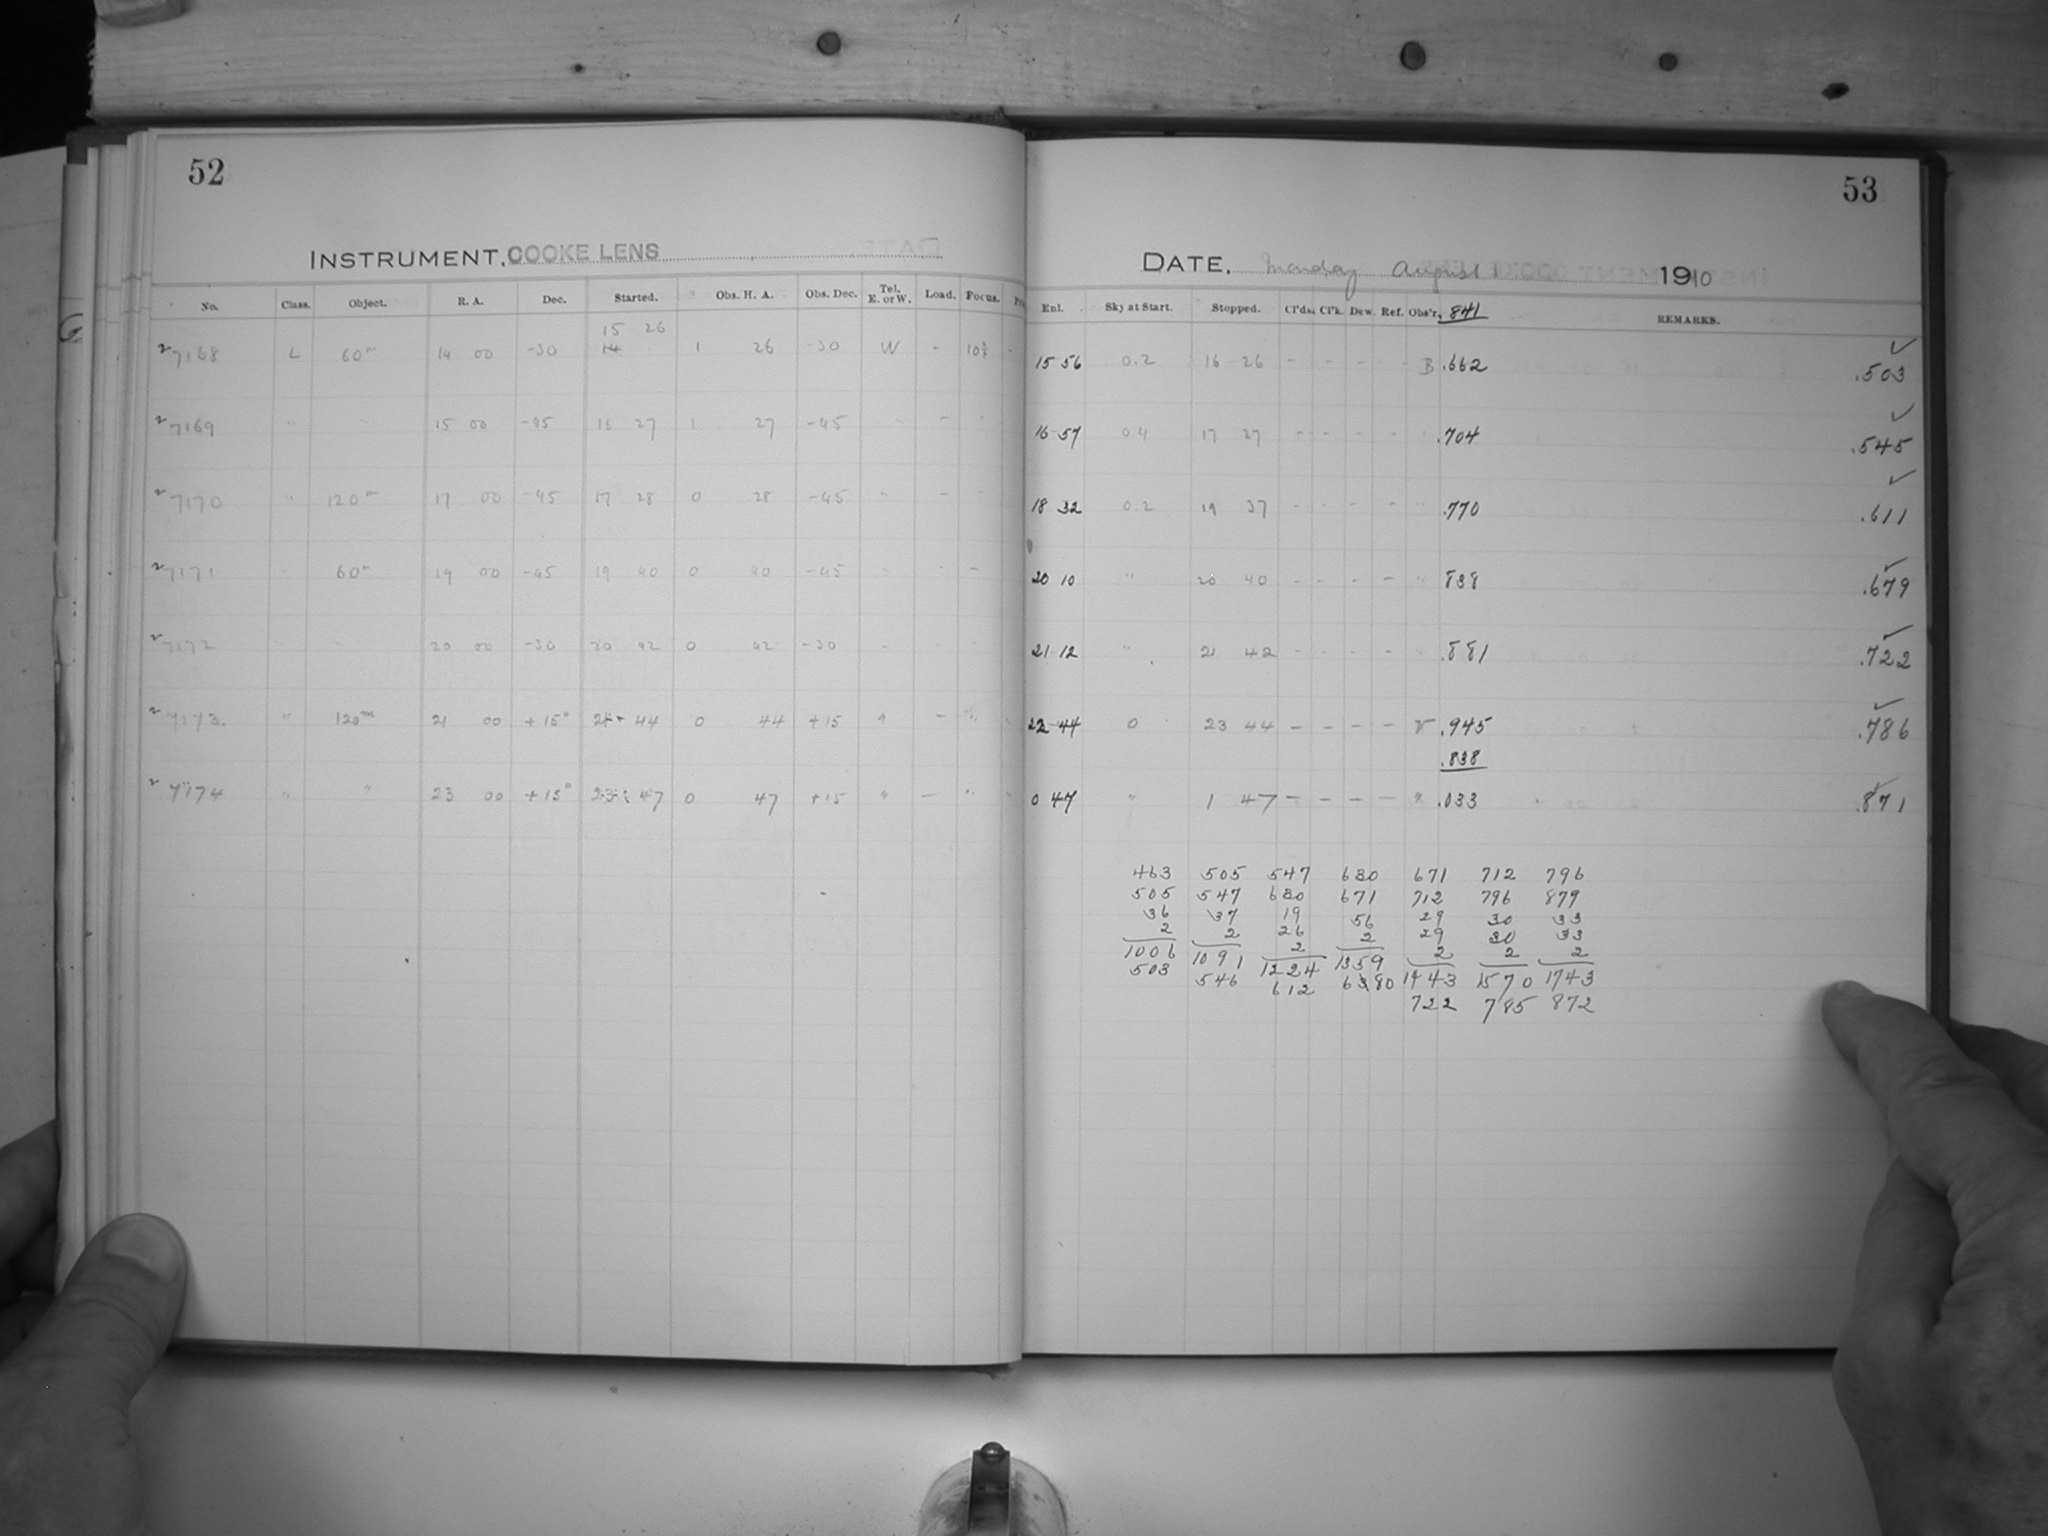 52
INSTRUMENT. COOKE LENS
No. Class. Object. R. A. Dec. Started. Obs. H. A. Obs. Dec. Tel. E. or W. Load. Focus.
15 26
7168 L 60m 14 00 -30 14 1 26 -30 W - 10
7169 " " 15 00 -45 16 27 1 27 -45 - - -
7170 " 120m 17 00 -45 17 28 0 28 -45 - - -
7171 60m 19 00 -45 19 40 0 40 -45 - - -
7172 20 00 -30 20 42 0 42 -30 - - -
7173. " 120m 21 00 +15° 21 44 0 44 +15 " - "
7174 " " 23 00 +15° 23 47 0 47 +15 " - "
53
DATE. Monday August 1 1910
Enl. Sky at Start. Stopped. Cl'ds. Cl'k. Dew. Ref. Obs'r. 841 REMARKS.
15 56 0.2 16 26 - - - - B .662 .503
16 57 0.4 17 27 - - - - .704 .545
18 32 0.2 19 37 - - - - " .770 .611
20 10 " 20 40 - - - - " 838 .679
21 12 " 21 42 - - - - " .881 .722
22 44 0 23 44 - - - - V .945 .786
.838
0 47 " 1 47 - - - - " .033 .871
463 505 547 630 671 712 796
505 547 630 671 712 796 879
36 37 19 56 29 30 33
2 2 26 2 29 30 33
1006 1091 2 1359 2 2 2
503 546 1224 680 1443 1570 1743
612 722 785 872